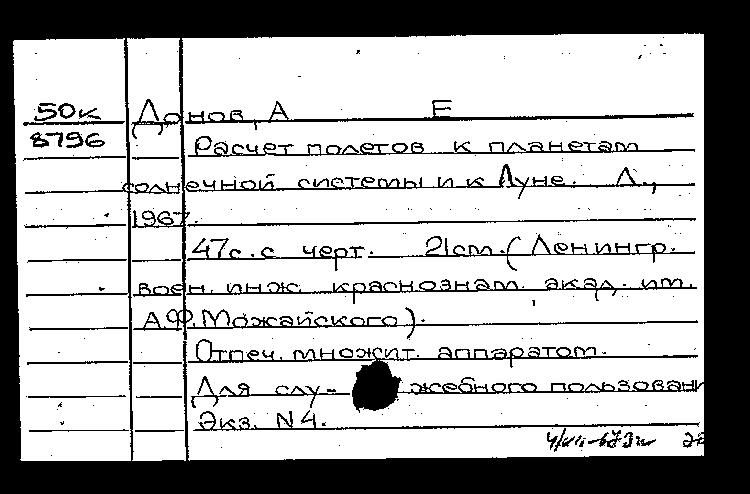 50к Донов, А Е
8796 Расчет полетов к планетам
солнечной системы и к Луне. Л.,
1967.
47с. с черт. 21cm. (Ленингр.
воен. инж. краснознам. акад. им.
А.Ф.Можайского).
Отпеч. множит. аппаратом.
Для слу- жебного пользован
Экз. N 4.